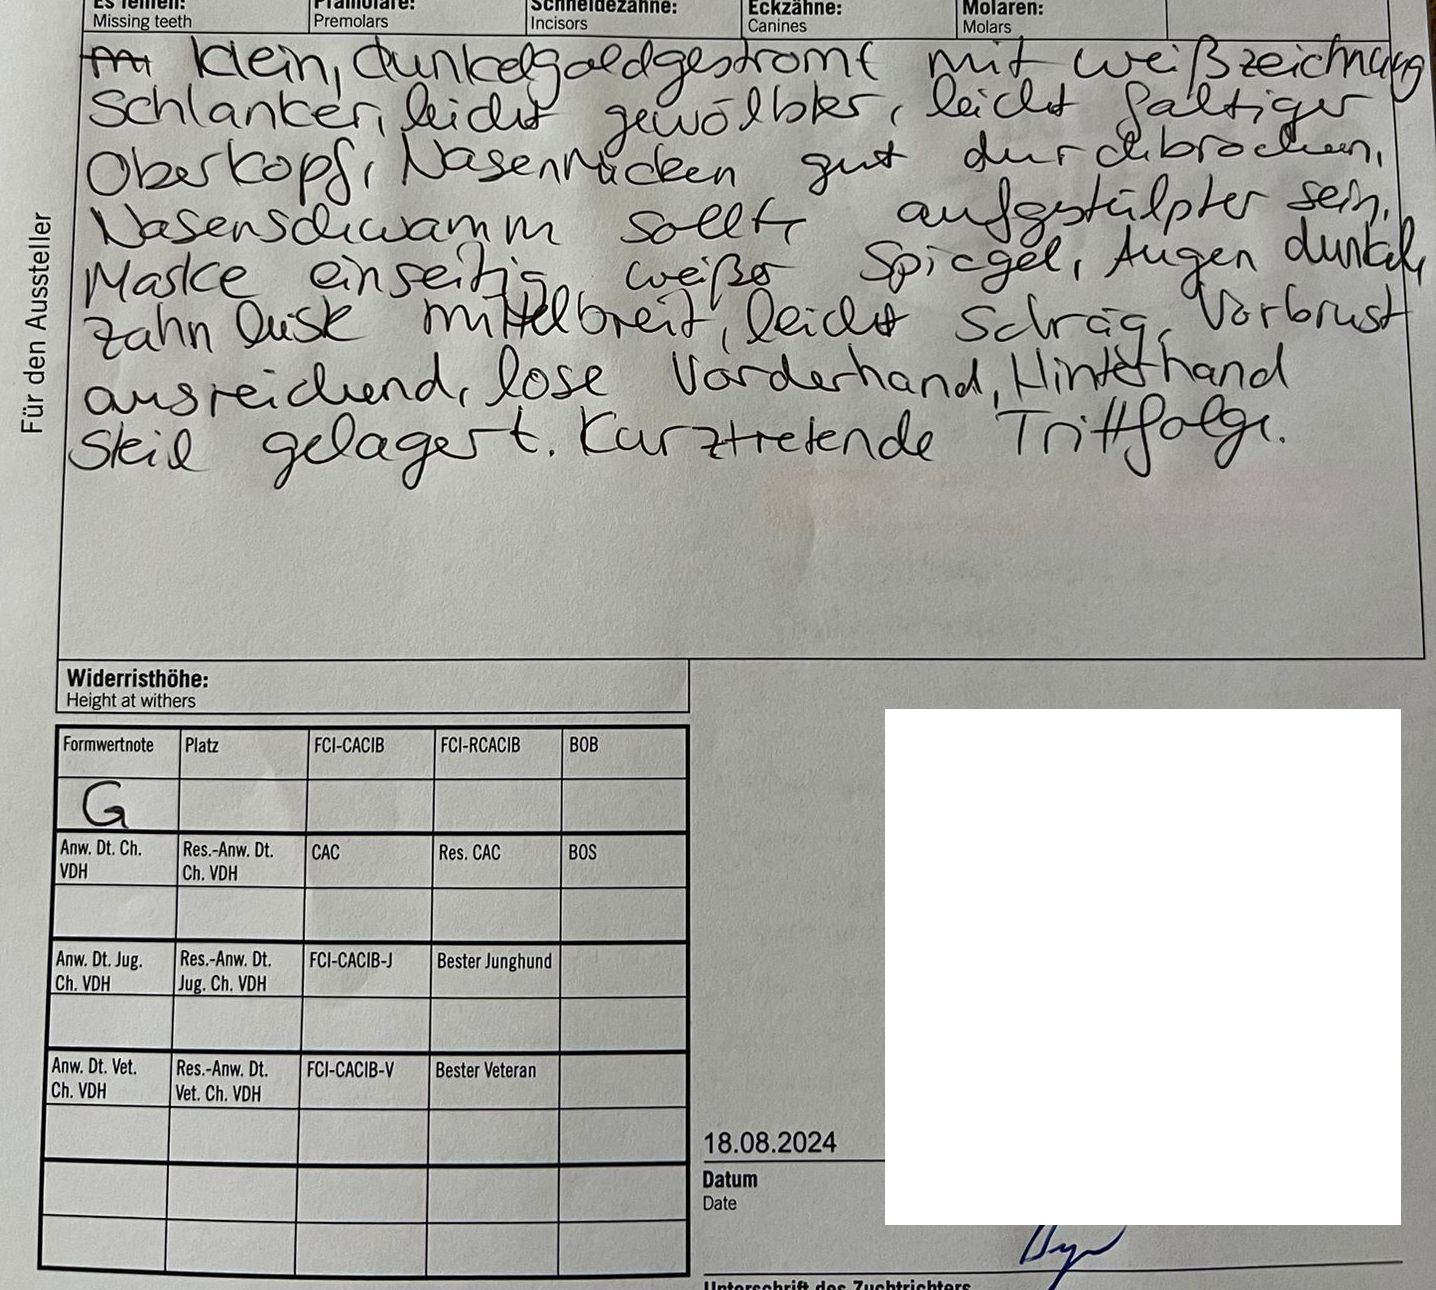 Es fehlen:
Missing teeth
Prämolare:
Premolars
Schneidezähne:
Incisors
Eckzähne:
Canines
Molaren:
Molars
Klein, dunkelgoldgestromt mit weißzeichnung
Schlanker, leicht gewölbter, leicht faltiger
Oberkopf, Nasenrücken gut durchbrochen,
Nasenschwamm sollte aufgestülpter sein,
Maske einseitig, weißer Spiegel, Augen dunkel,
zahnleiste mittelbreit, leicht schräg, Vorbrust
ausreichend, lose Vorderhand, Hinterhand
Steil gelagert. Kurztretende Trittfolge.
Für den Aussteller
Widerristhöhe:
Height at withers
Formwertnote Platz FCI-CACIB FCI-RCACIB BOB
G
Anw. Dt. Ch. VDH Res.-Anw. Dt. Ch. VDH CAC Res. CAC BOS
Anw. Dt. Jug. Ch. VDH Res.-Anw. Dt. Jug. Ch. VDH FCI-CACIB-J Bester Junghund
Anw. Dt. Vet. Ch. VDH Res.-Anw. Dt. Vet. Ch. VDH FCI-CACIB-V Bester Veteran
18.08.2024
Datum
Date
Unterschrift des Zuchtrichters